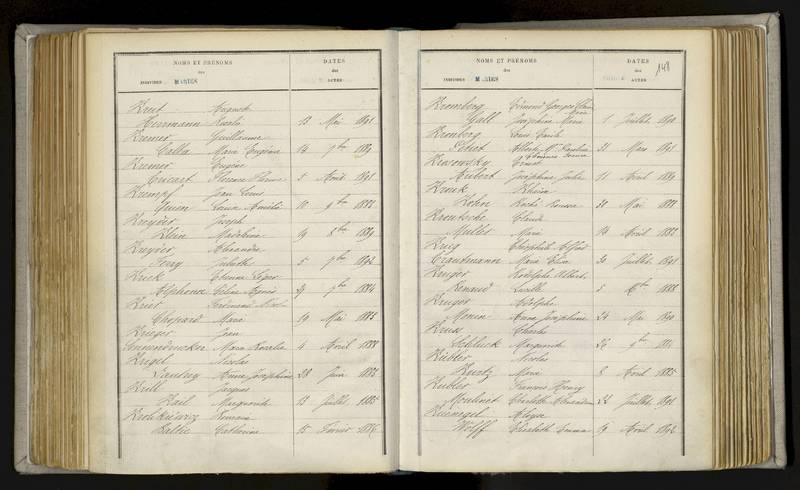 NOMS ET PRÉNOMS
des
INDIVIDUS MARIÉS
DATES
des
ACTES
Kreit Auguste
Herrmann Rosalie 12 Mai 1891
Kremer Guillaume
Calla Marie Eugénie 14 7bre 1889
Kremer Eugène
Cricart Florence 5 Août 1891
Krempf Jean Louis
Louise Amélie 10 9bre 1888
Kreyder Joseph
Klein Madeleine 19 8bre 1889
Kreyder Alexandre
Ferry Juliette 5 7bre 1892
Krick Etienne Léger
Alphonse Céline Agnès 29 7bre 1884
Krist Ferdinand
Chopard Marie 19 Mai 1885
Krieger Jean
Marie Rosalie 4 Avril 1888
Krigel Nicolas
Landry Anne Joséphine 28 Juin 1882
Krill Jacques
Kail Marguerite 13 Juillet 1885
Romain
Baltié Catherine 15 Février
NOMS ET PRÉNOMS
des
INDIVIDUS MARIÉS
DATES
des
ACTES
148
Kromberg Edmond Georges
Gall Joséphine Marie 1 Juillet 1890
Kronberg Louis Emile
31 Mars 1891
Krosowsky Ernest
Hubert Joséphine Julie 11 Avril 1889
Kruck
Hohn Louise 28 Mai 1888
Kroutsche Claude
Muller Marie 14 Avril 1882
Krug Théophile Alfred
Crautmann Marie Elisa 30 Juillet 1891
Kruger Rodolphe Albert
Renaud Lucille 5 1888
Kruger Adolphe
Monin Anne Joséphine 24 Mai 1890
Kruss Charles
Schluck Marguerite 9bre
Kubler Nicolas
Kurtz Marie 8 Avril 1885
Kubler François Henry
Moulinet Charlotte Alexandrine 22 Juillet 1891
Kuenegel Aloyse
Wolff Elisabeth Emma 19 Avril 1892